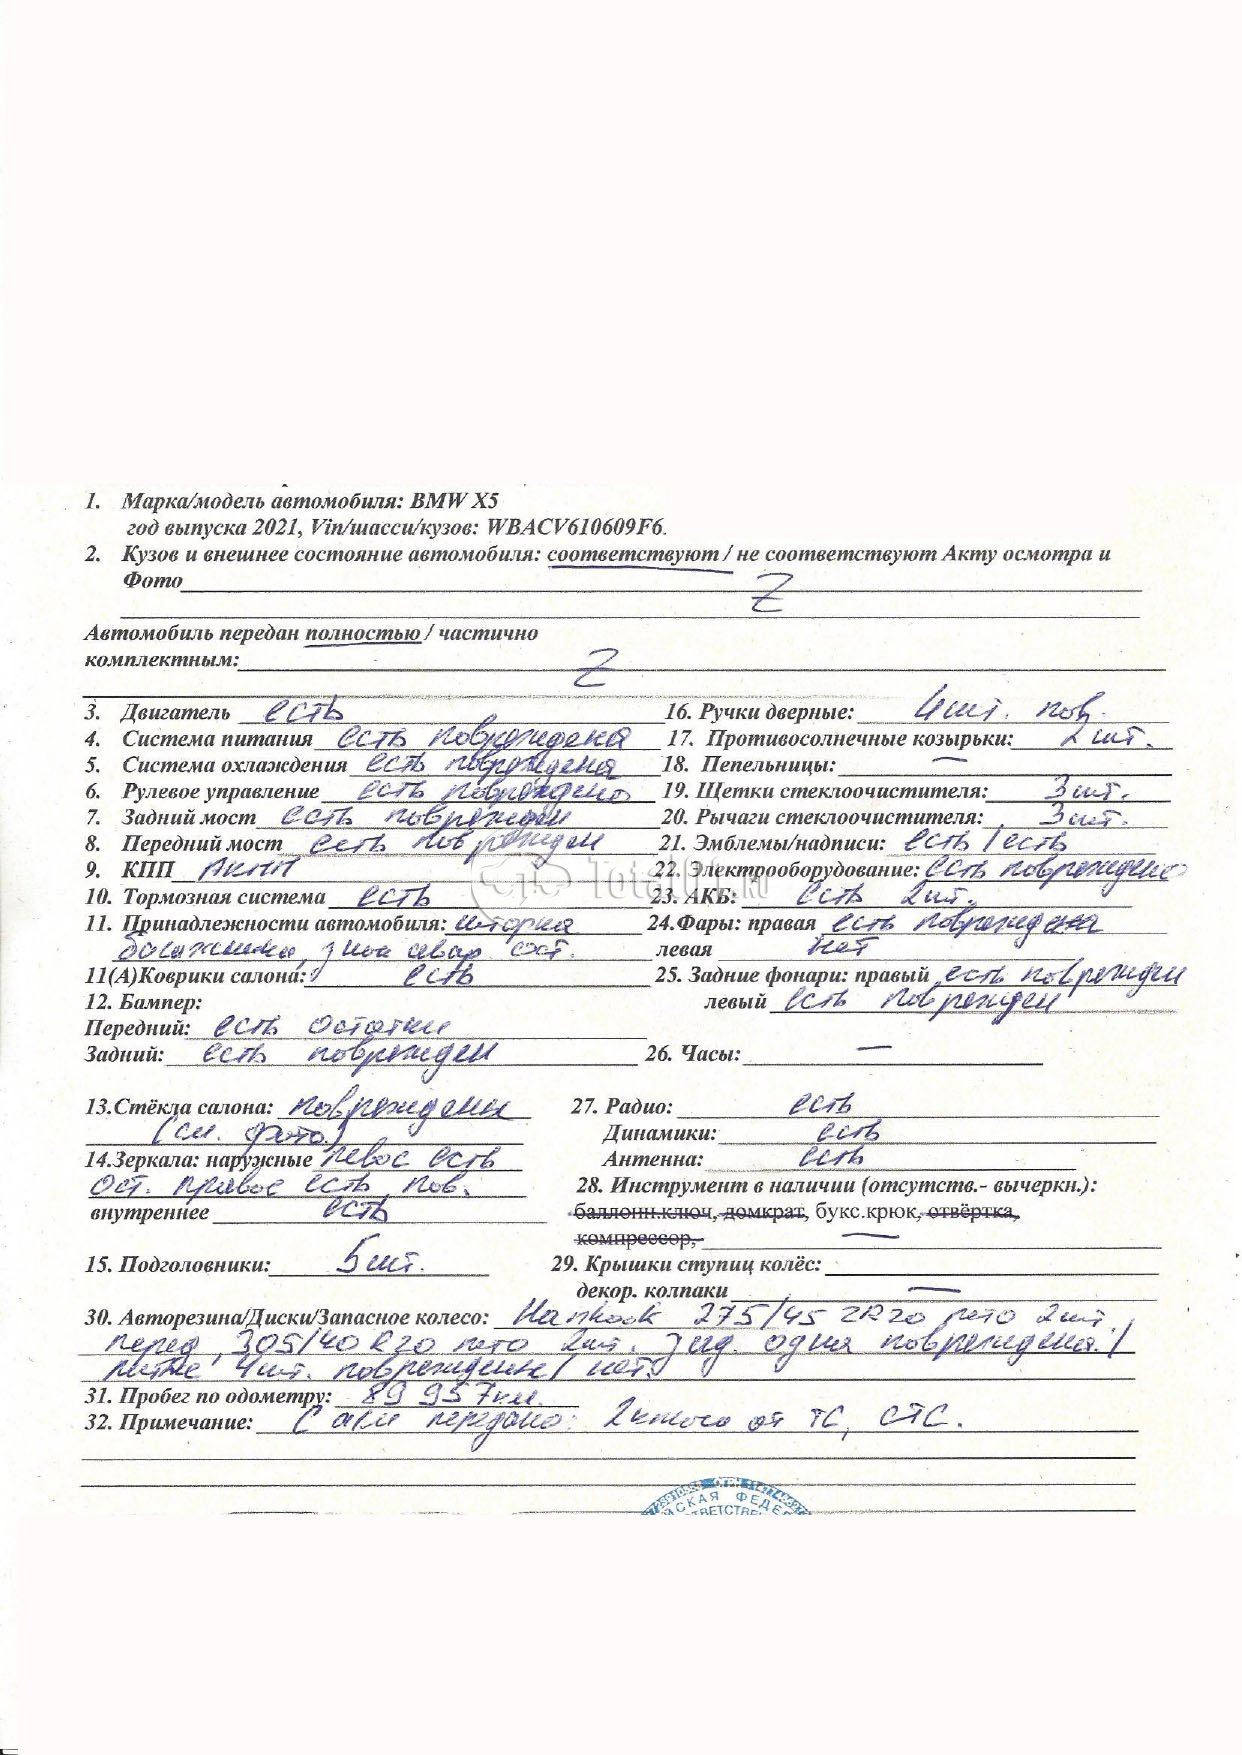 1. Марка/модель автомобиля: BMW X5
год выпуска 2021, Vin/шасси/кузов: WBACV610609F6.
2. Кузов и внешнее состояние автомобиля: соответствуют / не соответствуют Акту осмотра и
Фото Z
Автомобиль передан полностью / частично
комплектным: Z
3. Двигатель есть
4. Система питания есть повреждена
5. Система охлаждения есть повреждена
6. Рулевое управление есть повреждено
7. Задний мост есть поврежден
8. Передний мост есть поврежден
9. КПП АКПП
10. Тормозная система есть
11. Принадлежности автомобиля: шторка
багажника, знак авар. ост.
11(А)Коврики салона: есть
12. Бампер:
Передний: есть остатки
Задний: есть поврежден
13.Стёкла салона: повреждены
(см. фото.)
14.Зеркала: наружные левое есть
ост. правое есть пов.
внутреннее есть
15. Подголовники: 5 шт.
16. Ручки дверные: 4 шт. пов.
17. Противосолнечные козырьки: 2 шт.
18. Пепельницы: —
19. Щетки стеклоочистителя: 3 шт.
20. Рычаги стеклоочистителя: 3 шт.
21. Эмблемы/надписи: есть / есть
22. Электрооборудование: есть повреждено
23. АКБ: есть 2 шт.
24.Фары: правая есть повреждена
левая нет
25. Задние фонари: правый есть поврежден
левый есть поврежден
26. Часы: —
27. Радио: есть
Динамики: есть
Антенна: есть
28. Инструмент в наличии (отсутств.- вычеркн.):
баллонн.ключ, домкрат, букс.крюк, отвёртка,
компрессор, —
29. Крышки ступиц колёс:
декор. колпаки —
30. Авторезина/Диски/Запасное колесо: Hankook 275/45 ZR20 лето 2 шт.
перед, 305/40 R20 лето 2 шт. зад. одна повреждена. /
литые 4 шт. повреждены / нет.
31. Пробег по одометру: 89 957 км.
32. Примечание: С а/м передано: 2 ключа от ТС, СТС.
СКАЯ ФЕДЕ
ТВЕТСТВЕ
Total01.ru